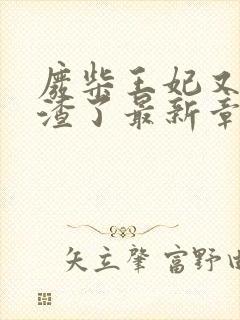 废柴王妃又
渣了最新章
矢立肇 富野由